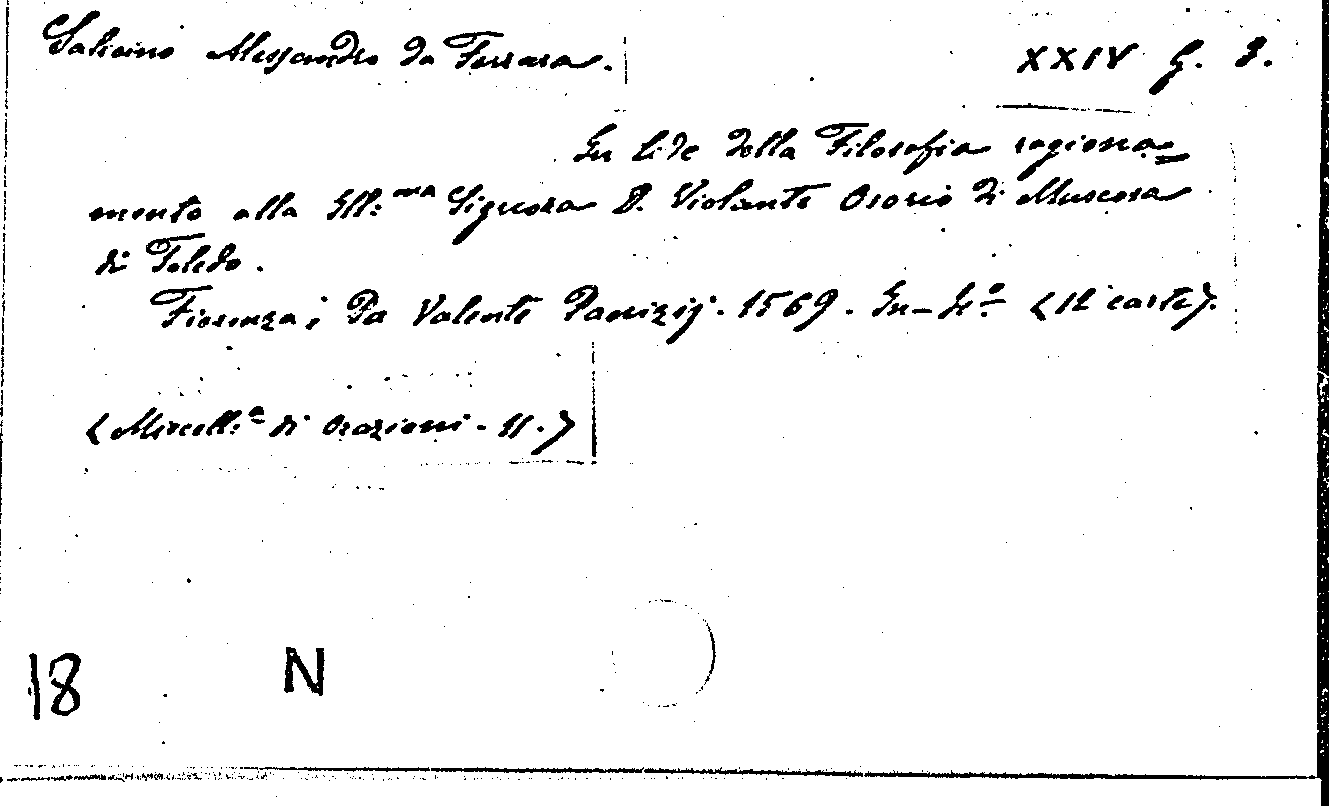 Salvino Alessandro da Ferrara. XXIV G. 3.
In lode della Filosofia ragiona=
mento alla Ill:ma Signora D. Violante Osorio di Muscosa
di Toledo.
Fiorenza; Da Valente Panizij. 1569. In-4.o (12 carte).
(Miscell:a di Orazioni. 11.)
18 N